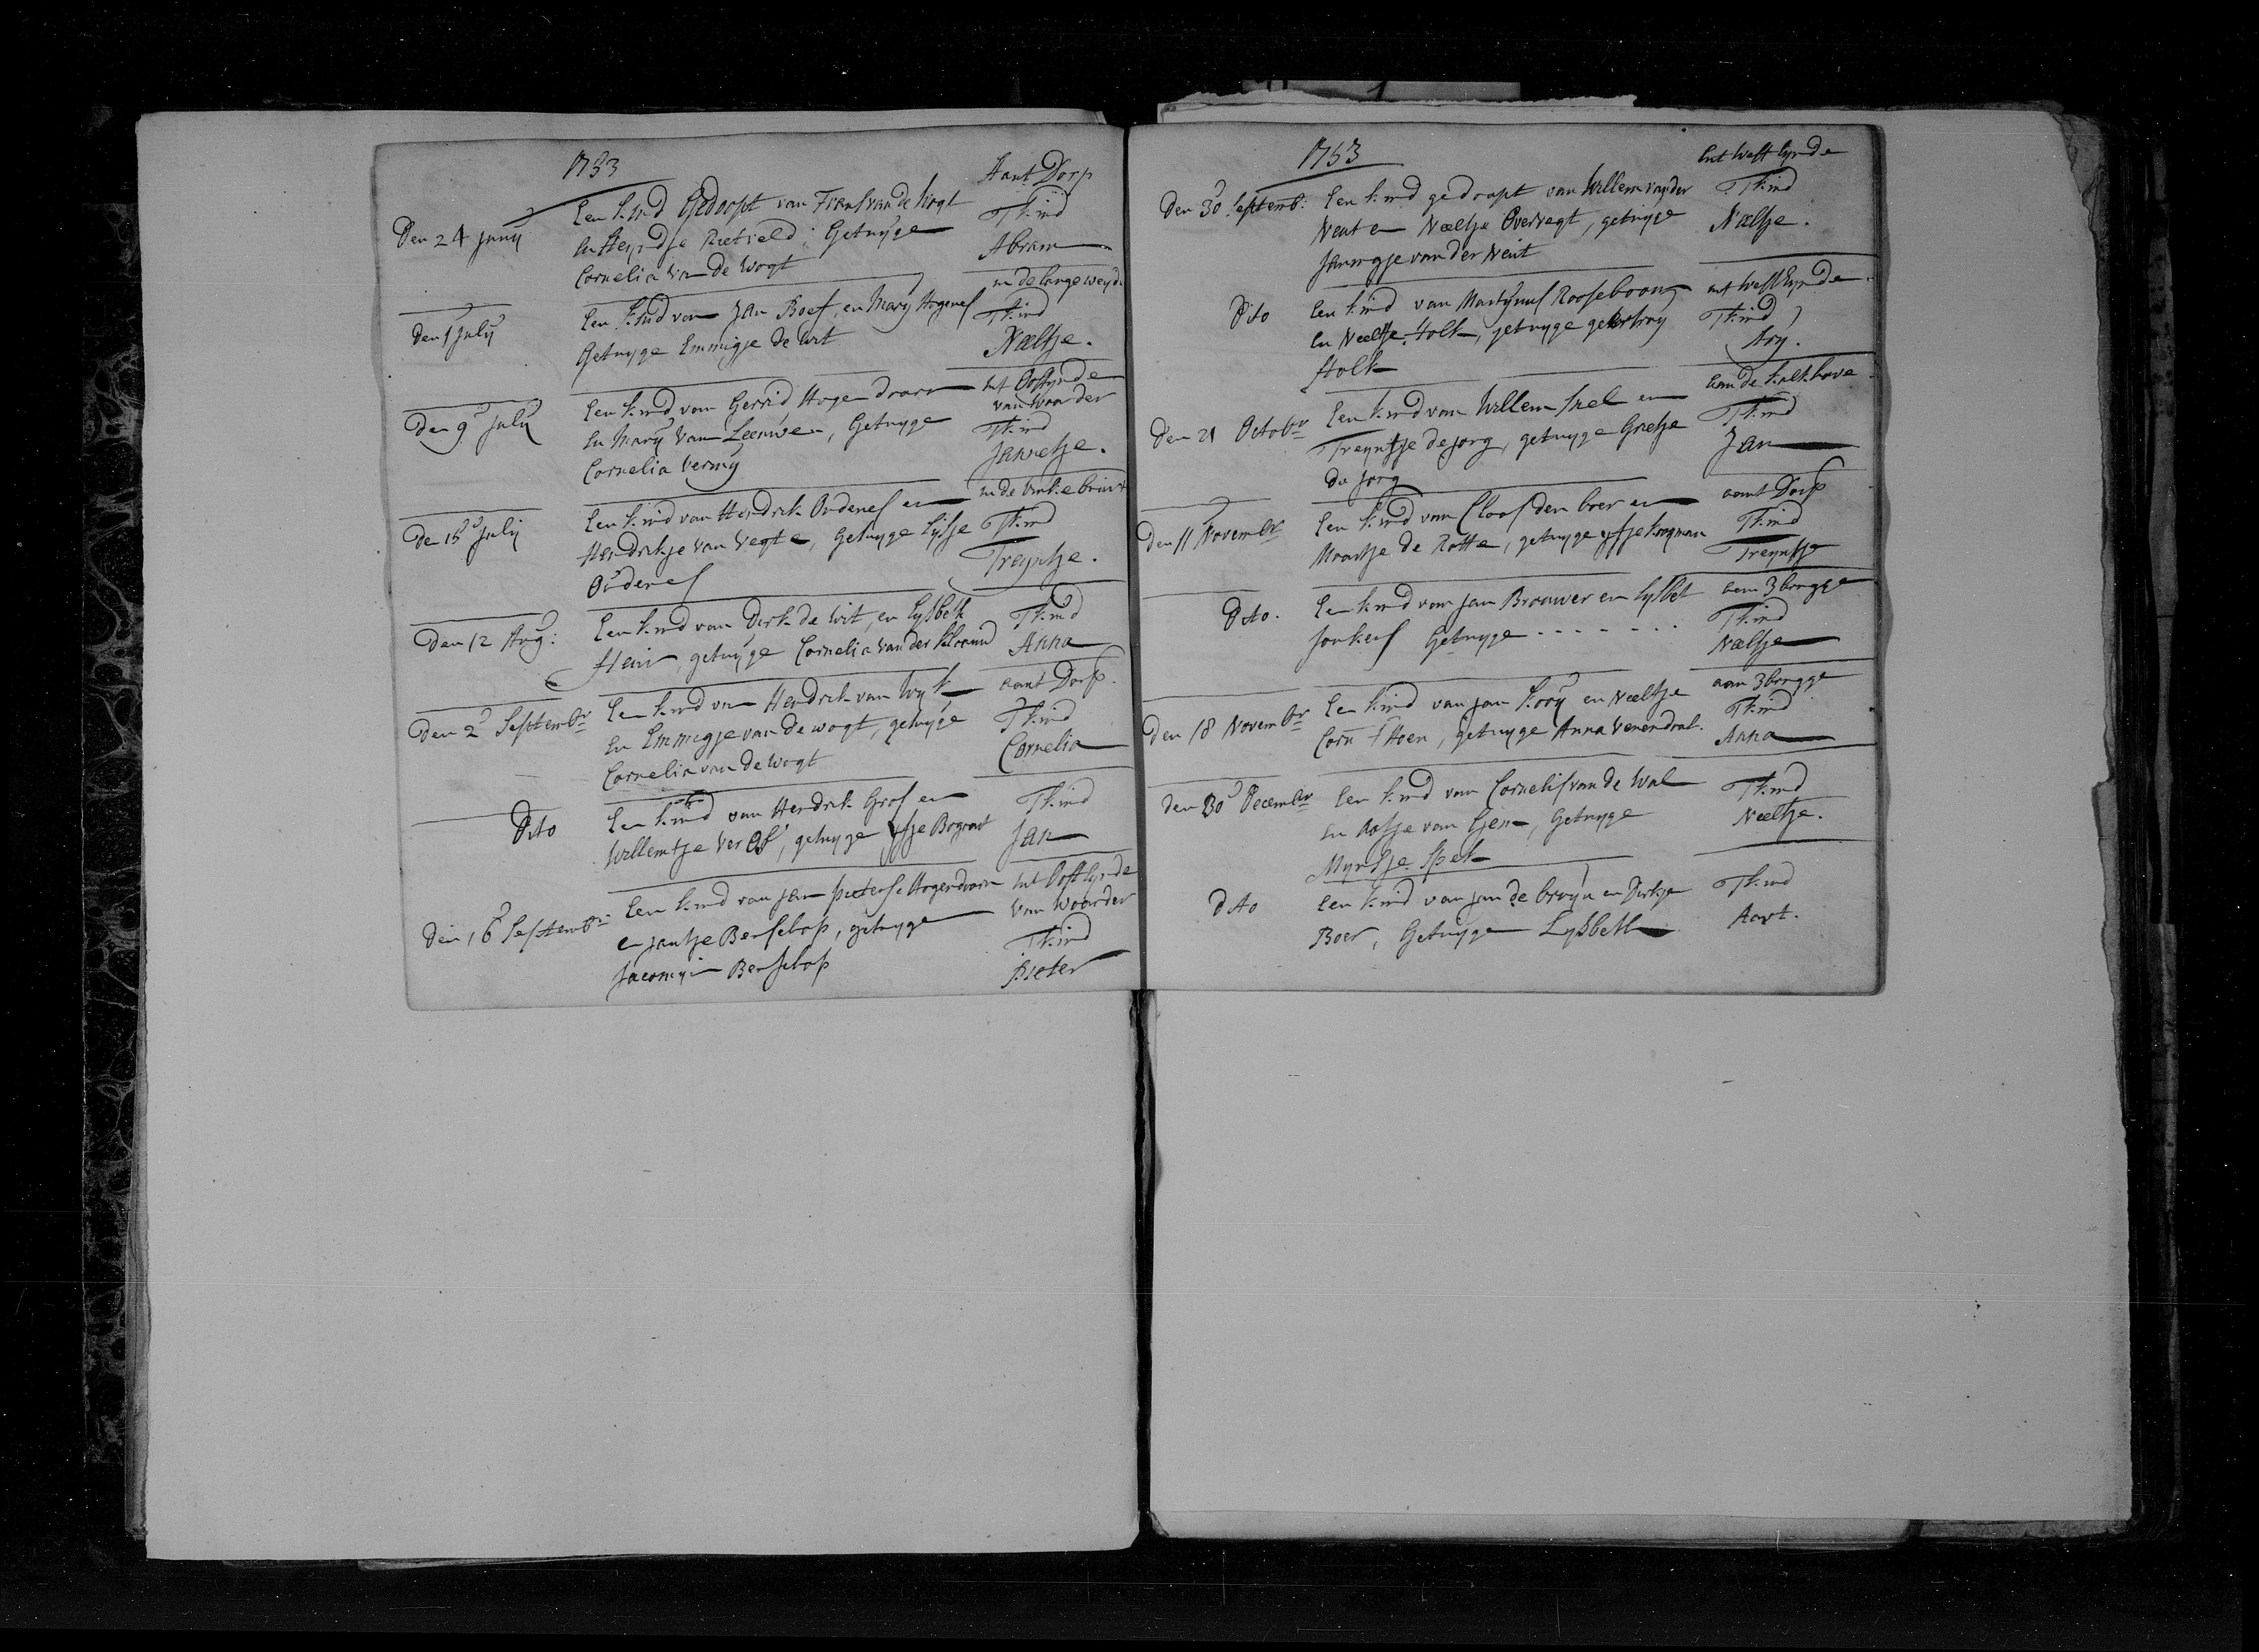 1753
Aant Dorp
Den 24 Junij
Een kind Gedoopt van Frans van de Wogt
T kind
En Heyndje Rietveld, Getuyge
Abram
Cornelia van de Wogt
in de lange weyde
Den 1 July
Een kind van Jan Boef, en Marij Hogenes
T kind
Getuyge Emmigje de Wit
Neeltje.
Den 9 July
Een kind van Gerrid Hogendoorn
int Oostynde
van Waarder
En Marij van Leeuwen, Getuyge
T kind
Cornelia Vermij
Jannetje.
Den 15 July
Een kind van Hendrik Oudenes en
in de
Hendrikje van Vegte, Getuyge Lijsje
T kind
Oudenes
Treyntje.
Den 12 Aug:
Een kind van Dirk de Wit, en Lysbeth
T kind
Hein, getuyge Cornelia van der
Anna
Den 2 Septembr
Een kind van Hendrik van Wyk
aant Dorp.
En Emmigje van de Wogt, getuyge
T kind
Cornelia van de Wogt
Cornelia
Dito
Een kind van Hendrik Gros en
T kind
Willemtje Ver, getuyge Ytje Bogaart
Jan
Den 16 Septembr
Een kind van Jan Pieterse Hogendoorn
int Oosteynde
van Waarder
en Jantje Benschop, getuyge
T kind
Jacomyn Benschop
Pieter
1753
Int Westeynde
Den 30 Septemb:
Een kind gedoopt van Willem van der
T kind
Neut en Neeltje Overvegt, getuyge
Neeltje.
Jannigje van der Neut
Dito
Een kind van Martynus Rooseboom
int Westeynde
En Neeltje Holk, getuyge geertruy
T kind
Holk
Ary.
Den 21 Octobr
Een kind van Willem en
aan de kalkhove
Treyntje de Jong, getuyge Grietje
T kind
de Jong
Jan
Den 11 Novembr
Een kind van Claas den boer en
aant Dorp
Maartje de Rotte, getuyge
T kind
Treyntje
Dito.
Een kind van Jan Brouwer en Lysbet
aan 3 brugge
Jonkers Getuyge - - - - - - -
T kind
Neeltje
Den 18 Novembr
Een kind van Jan Kooy en Neeltje
aan 3 brugge
Corn t Hoen, getuyge Anna Verendaal.
T kind
Anna
Den 30 Decembr
Een kind van Cornelis van de Wal
T kind
En Aafje van Ejen, Getuyge
Neeltje.
Myntje Spek
Dito
Een kind van Jan de bruyn en Dirkje
T kind
Boer, Getuyge Lysbeth
Aart.